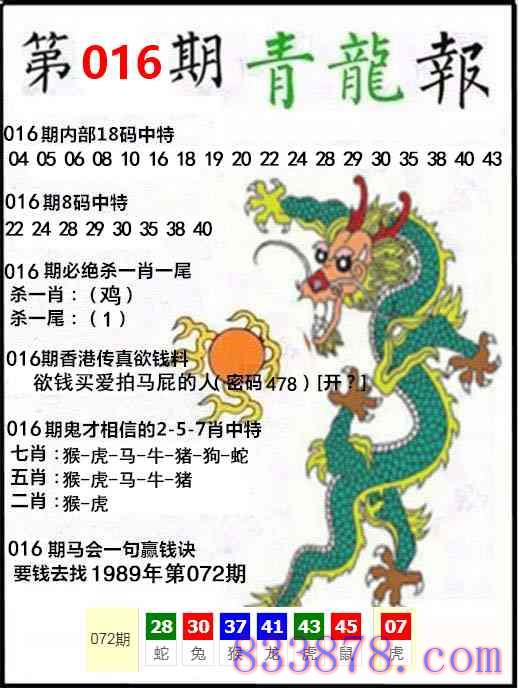 第016期青龍報
016期内部18码中特
04 05 06 08 10 16 18 19 20 22 24 28 29 30 35 38 40 43
016期8码中特
22 24 28 29 30 35 38 40
016 期必绝杀一肖一尾
杀一肖：（鸡）
杀一尾：（1）
016期香港传真欲钱料
欲钱买爱拍马屁的人(密码478)[开？]
016期鬼才相信的2-5-7肖中特
七肖：猴-虎-马-牛-猪-狗-蛇
五肖：猴-虎-马-牛-猪
二肖：猴-虎
016 期马会一句赢钱诀
要钱去找1989年第072期
072期 28 30 37 41 43 45 07
蛇 兔 猴 龙 虎 鼠 虎
833878.com